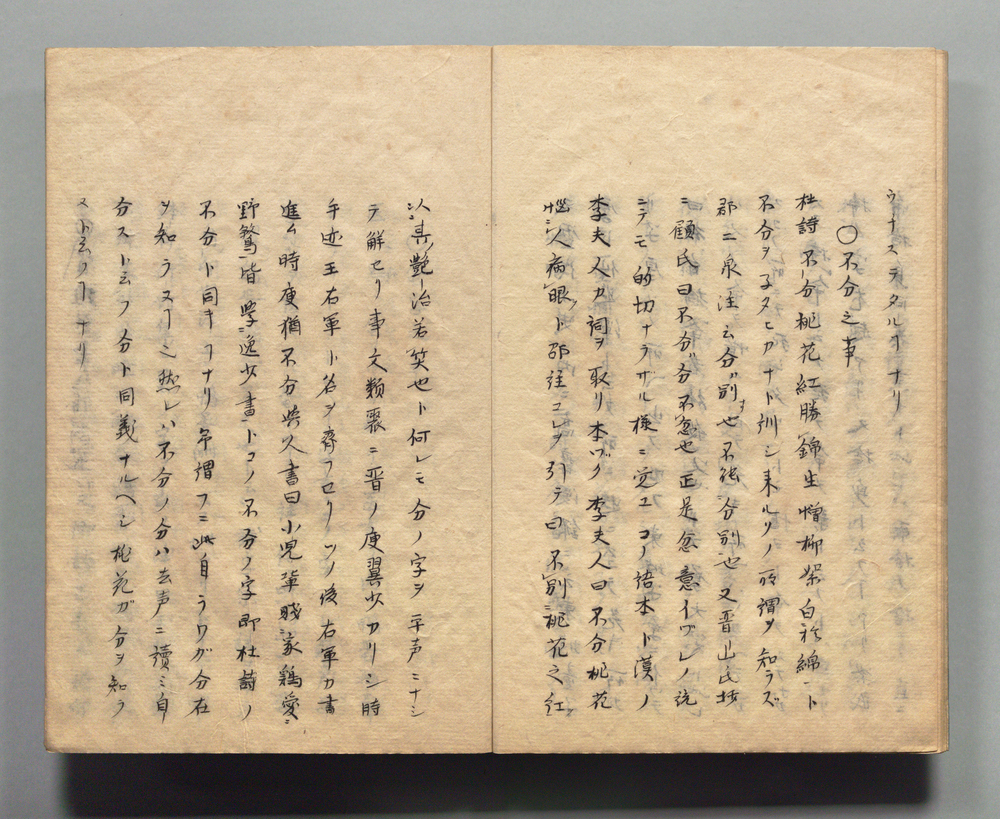 ウナステタルヿナリ
〇不分之事
杜詩不分桃花紅勝錦生憎柳絮白於綿ト
不分ヲ子タヒカナト訓シ来ルソノ所謂ヲ知ラズ
邵二泉注云分別也不能分別也又
ニ顧氏曰不分分不忿也正是忿意イヅレノ説
ニテモ的切ナラザル様ニ覚エコノ語本ト漢ノ
李夫人カ詞ヲ取リ本ヅク李夫人曰不分桃花
紅人病眼ト邵註コレヲ引テ曰不別桃花之紅
以其艶冶若笑也ト何レモ分ノ字ヲ平声ニナシ
テ解セリ事文類聚ニ晋ノ庾翼少カリシ時
手迹王右軍ト名ヲ斉フセリソノ後右軍カ書
進ム時庾猶不分与人書曰小児輩賤家鶏愛
野鶩皆学逸少書トコノ不分ノ字即杜詩ノ
不分ト同キヿナリ予謂フニ此自ラワガ分在
ヲ知ラスシ然レハ不分ノ分ハ去声ニ讀ミ自
分スト云フ分ト同義ナルヘシ桃花ガ分ヲ知ラ
スト云フヿナリ